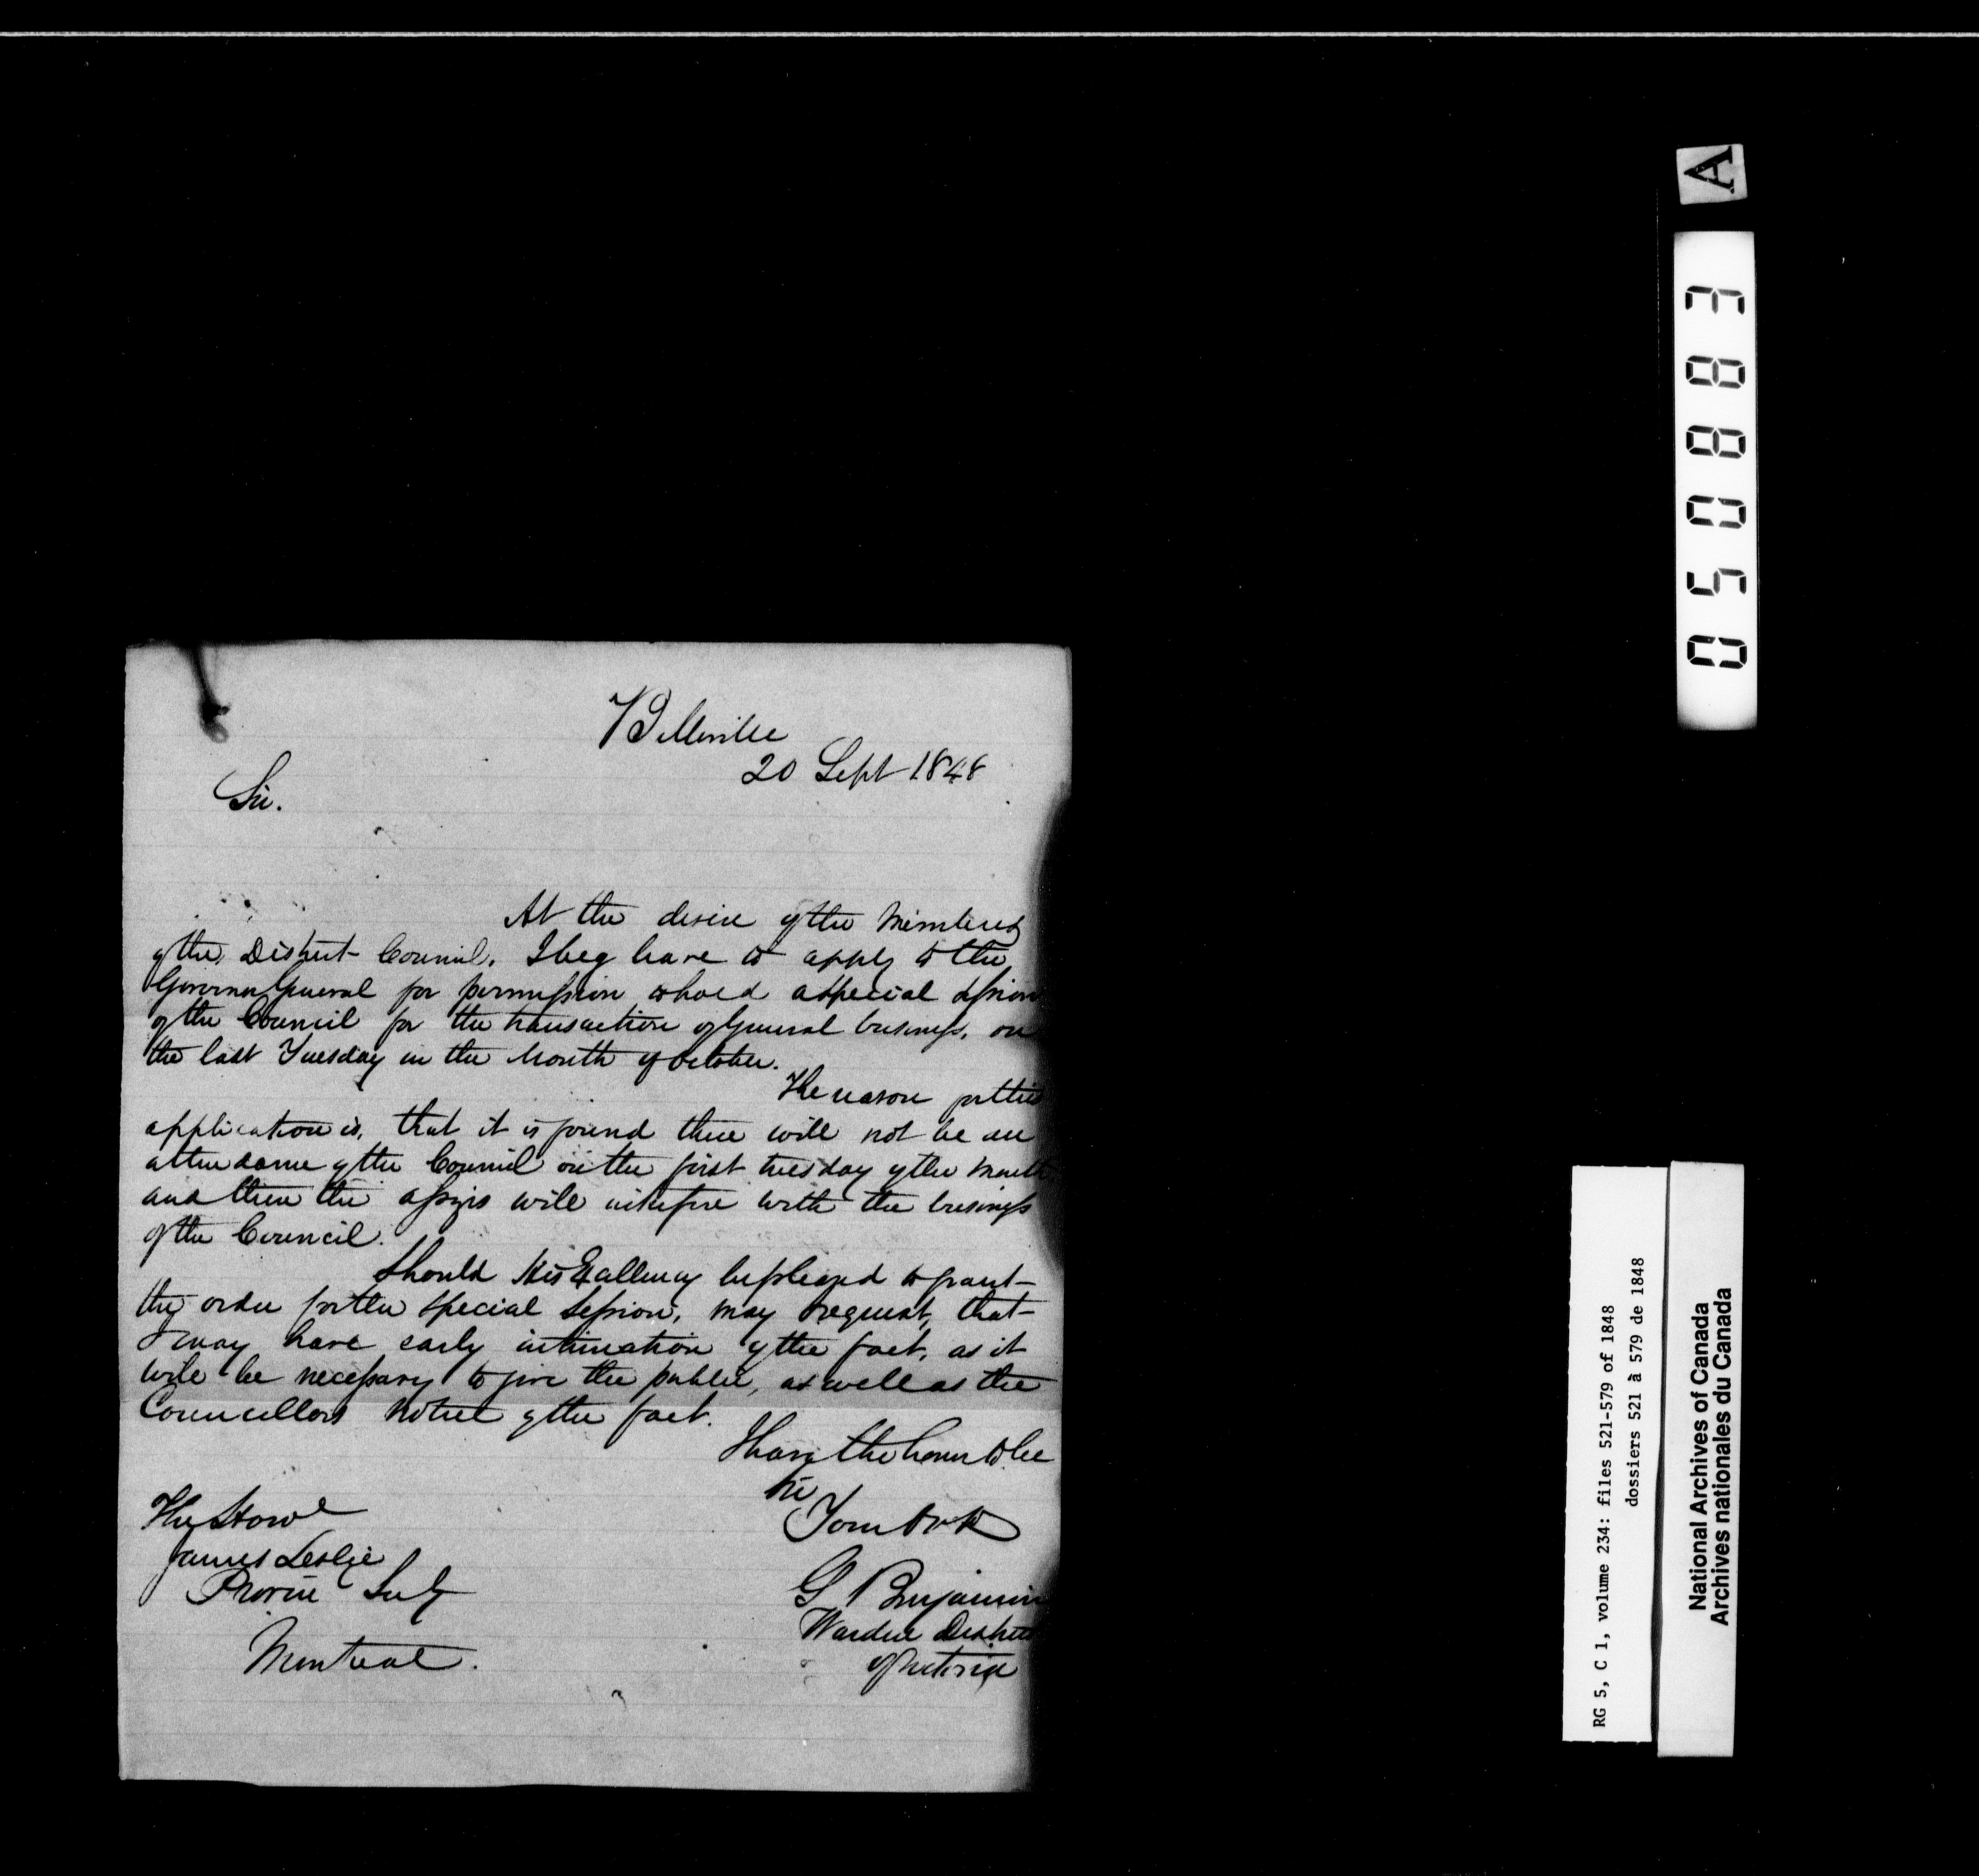 Belleville
20 Sept 1848
Sir.
At the desire of the Members
of the District Council. I beg leave to apply to the
Governor General for permission to hold a special session
of the Council for the transaction of General business, on
the last Tuesday in the Month of October.
The reason for this
application is, that it is found there will not be an
attendance of the Council on the first tuesday of the Month
and then the assizes will interfere with the business
of the Council.
Should His Excellency be pleased to grant
the order for the special Session, may request, that
I may have early intimation of the fact, as it
will be necessary to give the public, as well as the
Councillors notice of the fact.
I have the honor to be
Sir
Your Obt
G Benjamin
Warden District
of Victoria
The Honl
James Leslie
Provin Secy
Montreal.
A
050883
RG 5, C 1, volume 234: files 521-579 of 1848
dossiers 521 à 579 de 1848
National Archives of Canada
Archives nationales du Canada